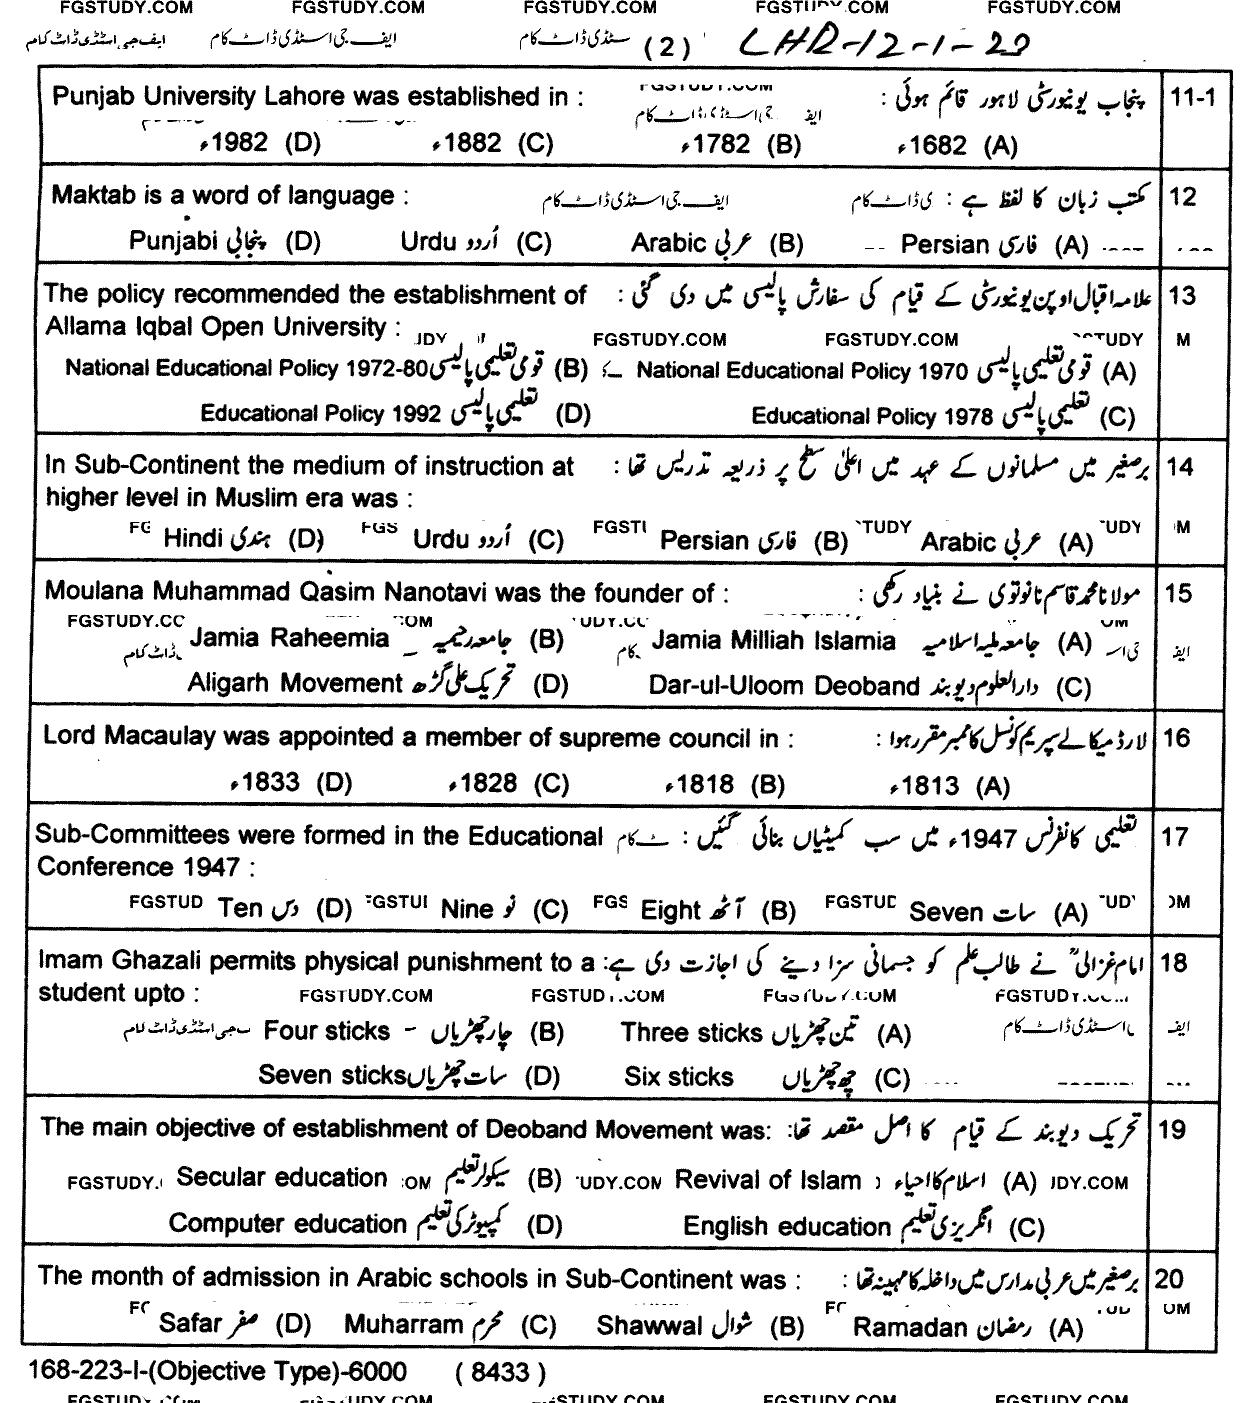 FGSTUDY.COM FGSTUDY.COM FGSTUDY.COM FGSTUDY.COM FGSTUDY.COM
ایف جی اسٹڈی ڈاٹ کام ایف جی اسٹڈی ڈاٹ کام سٹڈی ڈاٹ کام (2) LHR-12-1-20
Punjab University Lahore was established in : پنجاب یونیورسٹی لاہور قائم ہوئی : 11-1
1982ء (D) 1882ء (C) 1782ء (B) 1682ء (A)
Maktab is a word of language : ایف جی اسٹڈی ڈاٹ کام ی ڈاٹ کام مکتب زبان کا لفظ ہے : 12
Punjabi پنجابی (D) Urdu اُردو (C) Arabic عربی (B) Persian فارسی (A)
The policy recommended the establishment of علامہ اقبال اوپن یونیورسٹی کے قیام کی سفارش پالیسی میں دی گئی : 13
Allama Iqbal Open University : FGSTUDY.COM FGSTUDY.COM STUDY M
National Educational Policy 1972-80 قومی تعلیمی پالیسی (B) National Educational Policy 1970 قومی تعلیمی پالیسی (A)
Educational Policy 1992 تعلیمی پالیسی (D) Educational Policy 1978 تعلیمی پالیسی (C)
In Sub-Continent the medium of instruction at برصغیر میں مسلمانوں کے عہد میں اعلیٰ سطح پر ذریعہ تدریس تھا : 14
higher level in Muslim era was :
Hindi ہندی (D) FGS Urdu اُردو (C) Persian فارسی (B) TUDY Arabic عربی (A) UDY M
Moulana Muhammad Qasim Nanotavi was the founder of : مولانا محمد قاسم نانوتوی نے بنیاد رکھی : 15
Jamia Raheemia جامعہ رحیمیہ (B) Jamia Milliah Islamia جامعہ ملیہ اسلامیہ (A)
Aligarh Movement تحریک علی گڑھ (D) Dar-ul-Uloom Deoband دارالعلوم دیوبند (C)
Lord Macaulay was appointed a member of supreme council in : لارڈ میکالے سپریم کونسل کا ممبر مقرر ہوا : 16
1833ء (D) 1828ء (C) 1818ء (B) 1813ء (A)
Sub-Committees were formed in the Educational تعلیمی کانفرنس 1947ء میں سب کمیٹیاں بنائی گئیں : 17
Conference 1947 :
FGSTUD Ten دس (D) Nine نو (C) FGS Eight آٹھ (B) FGSTUD Seven سات (A) UD OM
Imam Ghazali permits physical punishment to a امام غزالیؒ نے طالب علم کو جسمانی سزا دینے کی اجازت دی ہے: 18
student upto : FGSTUDY.COM FGSTUDY.COM FGSTUDY.COM FGSTUDY.COM
Four sticks چار چھڑیاں (B) Three sticks تین چھڑیاں (A) اسٹڈی ڈاٹ کام ایف
Seven sticks سات چھڑیاں (D) Six sticks چھ چھڑیاں (C)
The main objective of establishment of Deoband Movement was: تحریک دیوبند کے قیام کا اصل مقصد تھا: 19
FGSTUDY. Secular education سیکولر تعلیم (B) UDY.COM Revival of Islam اسلام کا احیاء (A) UDY.COM
Computer education کمپیوٹر کی تعلیم (D) English education انگریزی تعلیم (C)
The month of admission in Arabic schools in Sub-Continent was : برصغیر میں عربی مدارس میں داخلہ کا مہینہ تھا : 20
Safar صفر (D) Muharram محرم (C) Shawwal شوال (B) Ramadan رمضان (A)
168-223-I-(Objective Type)-6000 ( 8433 )
FGSTUDY.COM FGSTUDY.COM FGSTUDY.COM FGSTUDY.COM FGSTUDY.COM